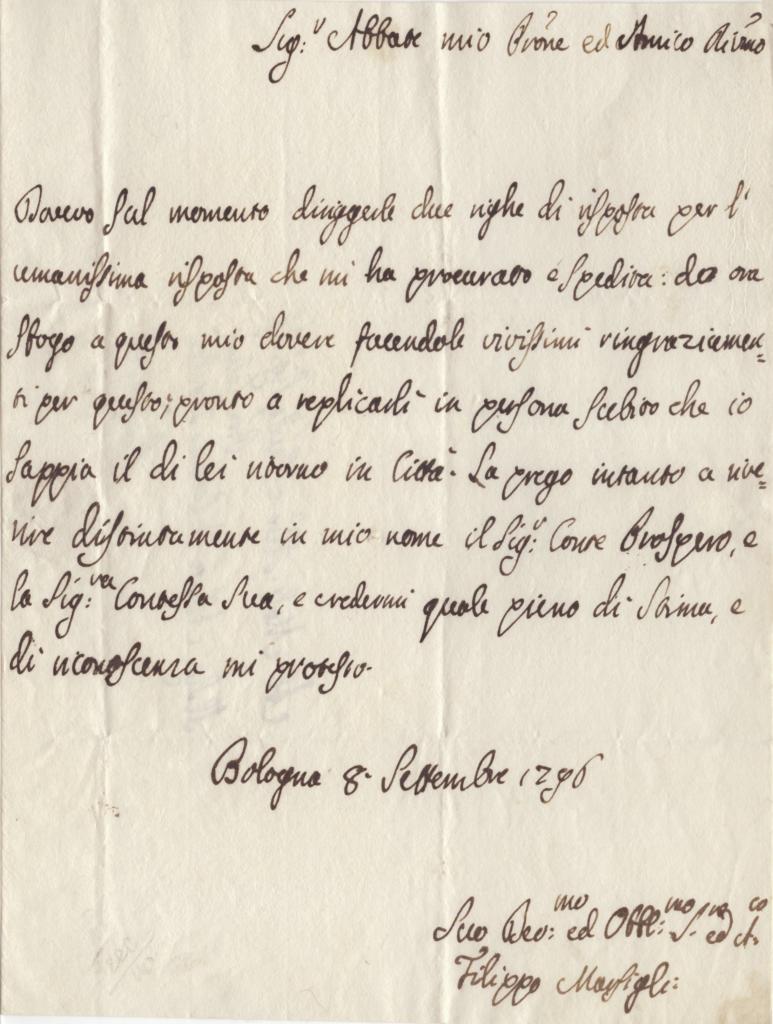 Sig:r Abbate mio Prõne ed Amico Riṽmo
Dovevo sul momento diriggerle due righe di risposta per l'
umanissima risposta che mi ha procurato e spedita: do ora
sfogo a questo mio dovere facendole vivissimi ringraziamen=
ti per questo; pronto a replicarli in persona subito che io
sappia il di lei ritorno in Città. La prego intanto a rive=
rire distintamente in mio nome il Sig:r Conte Prospero, e
la Sig:ra Contessa Sua, e credermi quale pieno di stima, e
di riconoscenza mi protesto.
Bologna 8. Settembre 1796
Suo Dev:mo ed Obbl:mo S.re ed A:co
Filippo Marsigli: